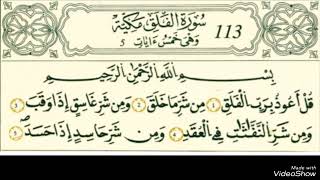 سُورَةُ الْفَلَقِ مَكِّيَّة 113
وَهِيَ خَمْسُ ءَايَاتٍ 5
بِسْمِ اللَّهِ الرَّحْمَٰنِ الرَّحِيمِ
قُلْ أَعُوذُ بِرَبِّ الْفَلَقِ ١ مِن شَرِّ مَا خَلَقَ ٢ وَمِن شَرِّ غَاسِقٍ إِذَا وَقَبَ ٣
وَمِن شَرِّ النَّفَّاثَاتِ فِي الْعُقَدِ ٤ وَمِن شَرِّ حَاسِدٍ إِذَا حَسَدَ ٥
Made with
VideoShow